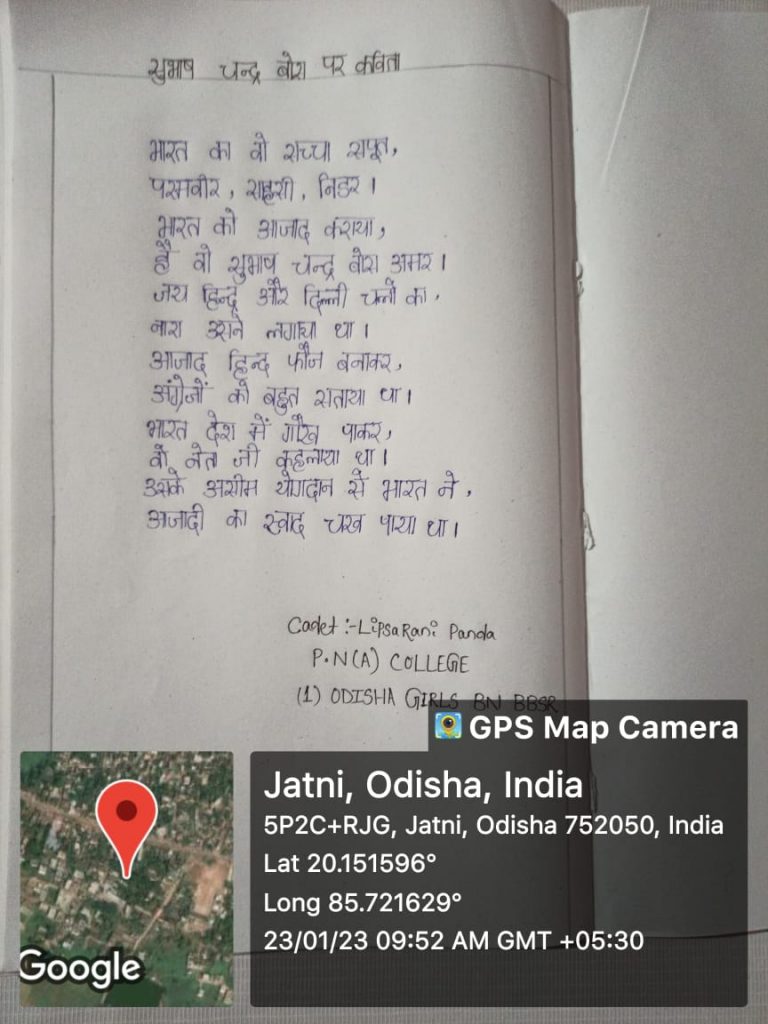 सुभाष चन्द्र बोस पर कविता
भारत का वो सच्चा सपूत,
परमवीर, साहसी, निडर।
भारत को आजाद कराया,
है वो सुभाष चन्द्र बोस अमर।
जय हिन्द और दिल्ली चलो का,
नारा उसने लगाया था।
आजाद हिन्द फौज बनाकर,
अंग्रेजों को बहुत सताया था।
भारत देश में गौरव पाकर,
वो नेता जी कहलाया था।
उसके असीम योगदान से भारत ने,
अजादी का स्वाद चख पाया था।
Cadet:-Lipsa Rani Panda
P.N(A) COLLEGE
(1) ODISHA GIRLS BN BBSR
GPS Map Camera
Jatni, Odisha, India
5P2C+RJG, Jatni, Odisha 752050, India
Lat 20.151596°
Long 85.721629°
23/01/23 09:52 AM GMT +05:30
Google